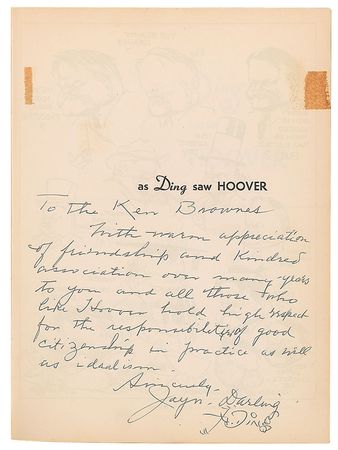 as Ding saw HOOVER
To The Ken Brownes
With warm appreciation
of friendship and Kindred
association over many years
to you and all those who
like Hoover hold high respect
for the responsibilities of good
citizenship in practice as well
as idealism.
Sincerely,
Jay N. Darling
"Ding"